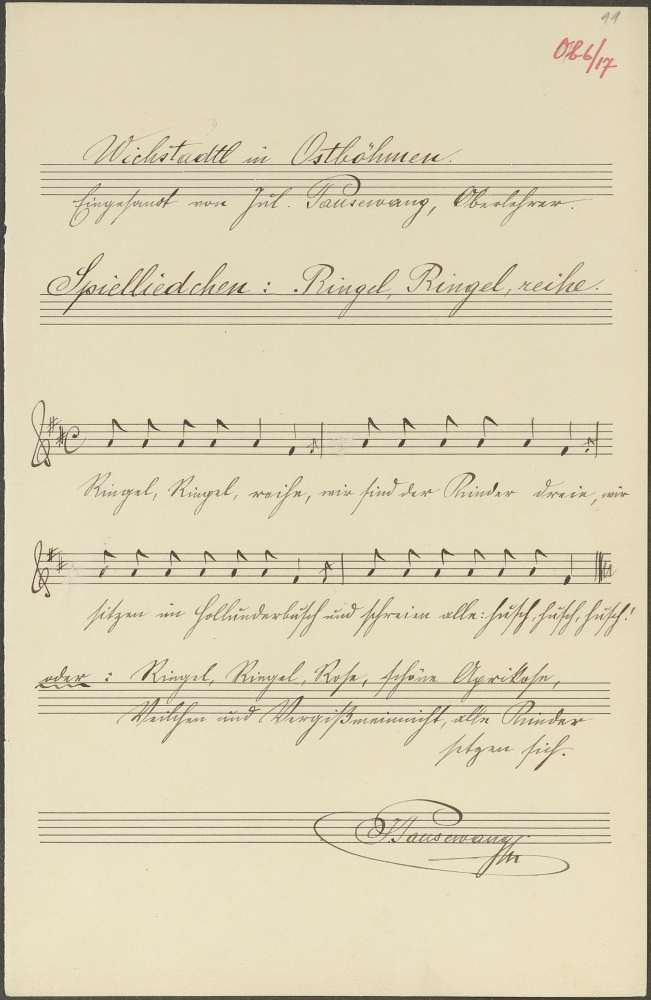 99
Wichstadtl in Ostböhmen.
Eingesandt von Jul. Pausewang, Oberlehrer.
Spielliedchen: Ringel, Ringel, reihe.
Ringel, Ringel, reihe, wir sind der Kinder dreie, wir
sitzen im Hollunderbusch und schreien alle: husch, husch, husch!
oder: Ringel, Ringel, Rose, schöne Aprikose,
Veilchen und Vergißmeinnicht, alle Kinder
setzen sich.
JPausewang